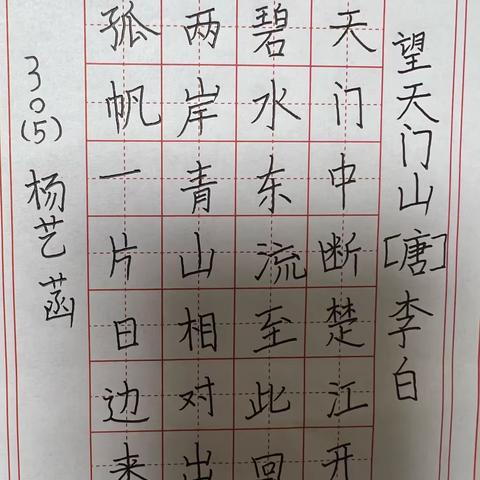 望天门山[唐]李白
天门中断楚江开
碧水东流至此回
两岸青山相对出
孤帆一片日边来
30(5)杨艺菡